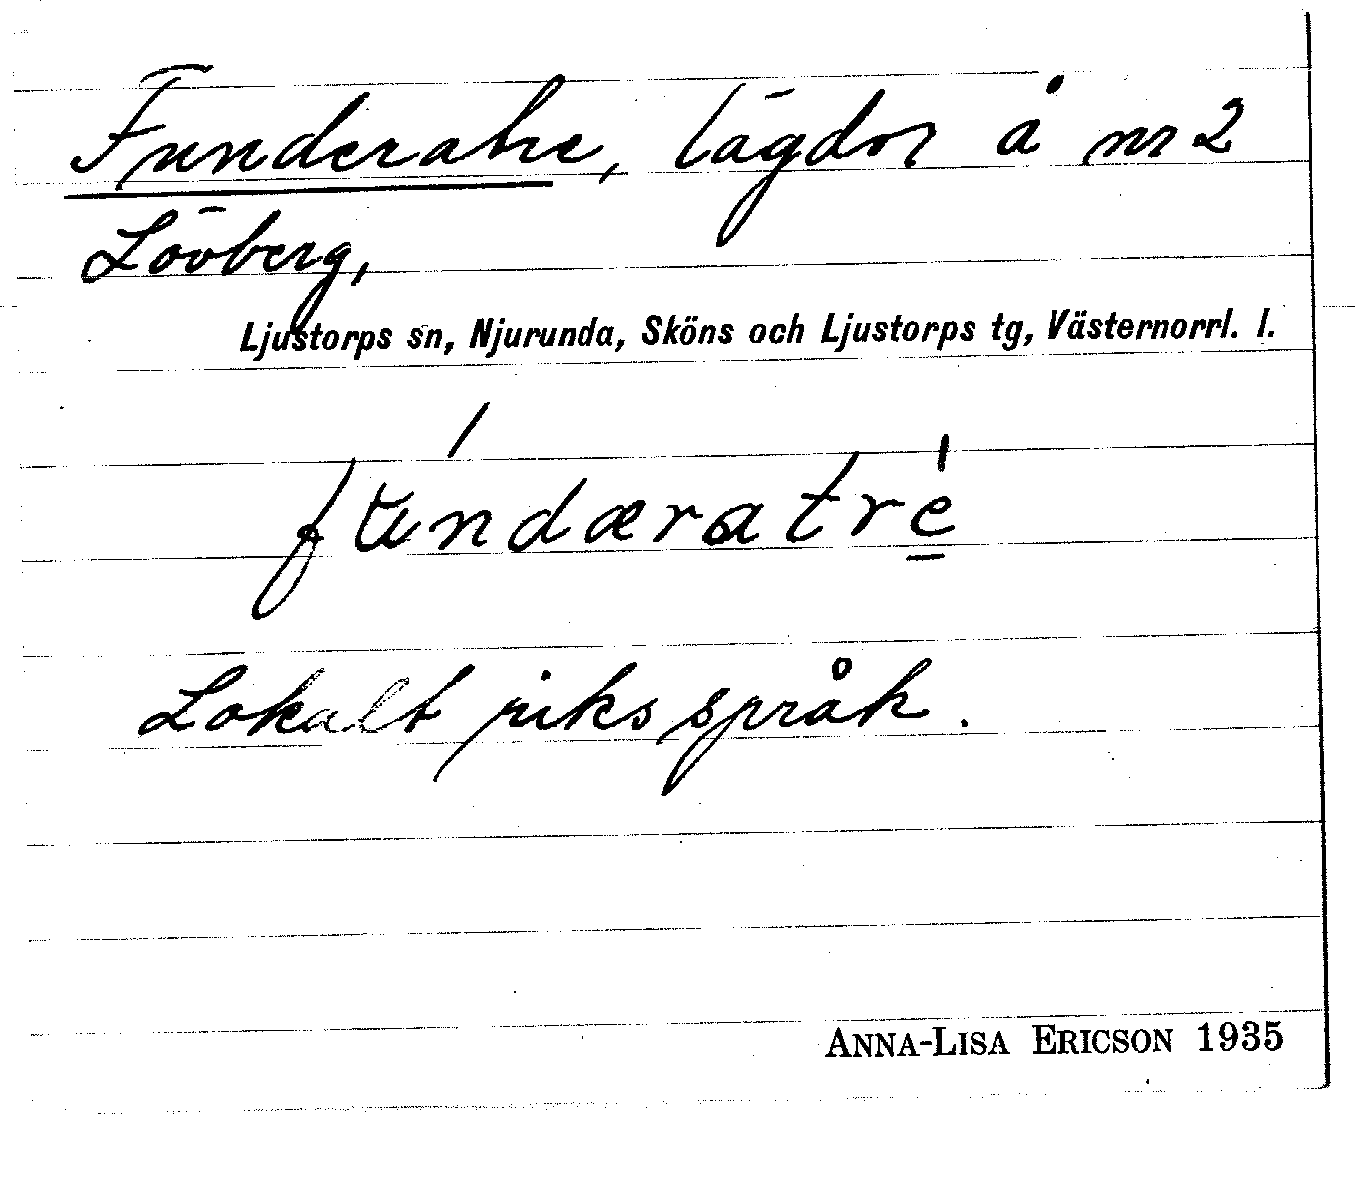 Funderatre, lägdor å nr 2
Lövberg,
Ljustorps sn, Njurunda, Sköns och Ljustorps tg, Västernorrl. l.
fundæratré
Lokalt riksspråk.
ANNA-LISA ERICSON 1935